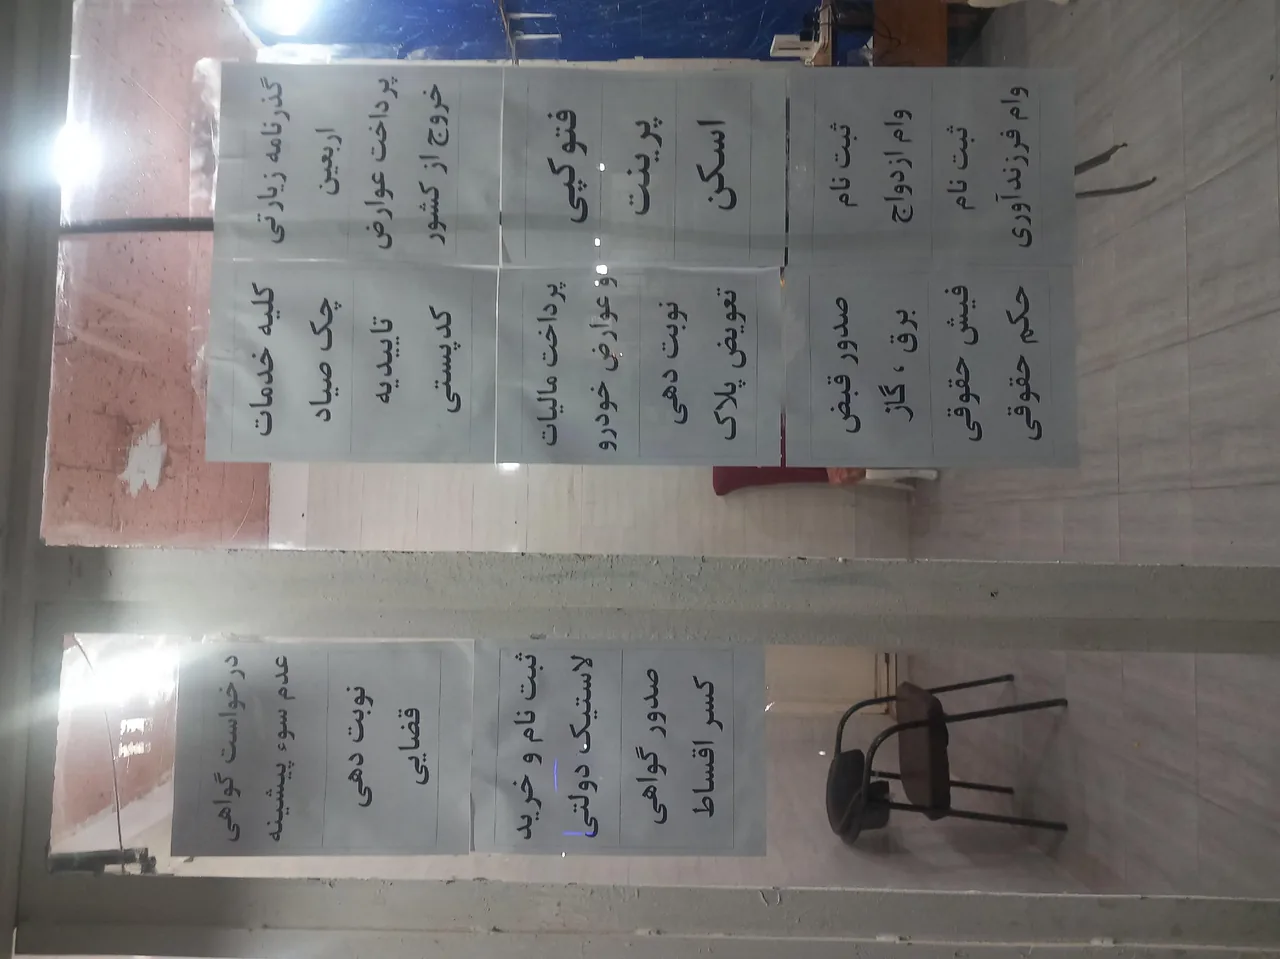 گذرنامه زیارتی
اربعین
پرداخت عوارض
خروج از کشور
فتوکپی
پرینت
اسکن
ثبت نام
وام ازدواج
ثبت نام
وام فرزندآوری
کلیه خدمات
چک صیاد
تاییدیه
کدپستی
پرداخت مالیات
و عوارض خودرو
نوبت دهی
تعویض پلاک
صدور قبض
برق ، گاز
فیش حقوقی
حکم حقوقی
درخواست گواهی
عدم سوء پیشینه
نوبت دهی
قضایی
ثبت نام و خرید
لاستیک دولتی
صدور گواهی
کسر اقساط